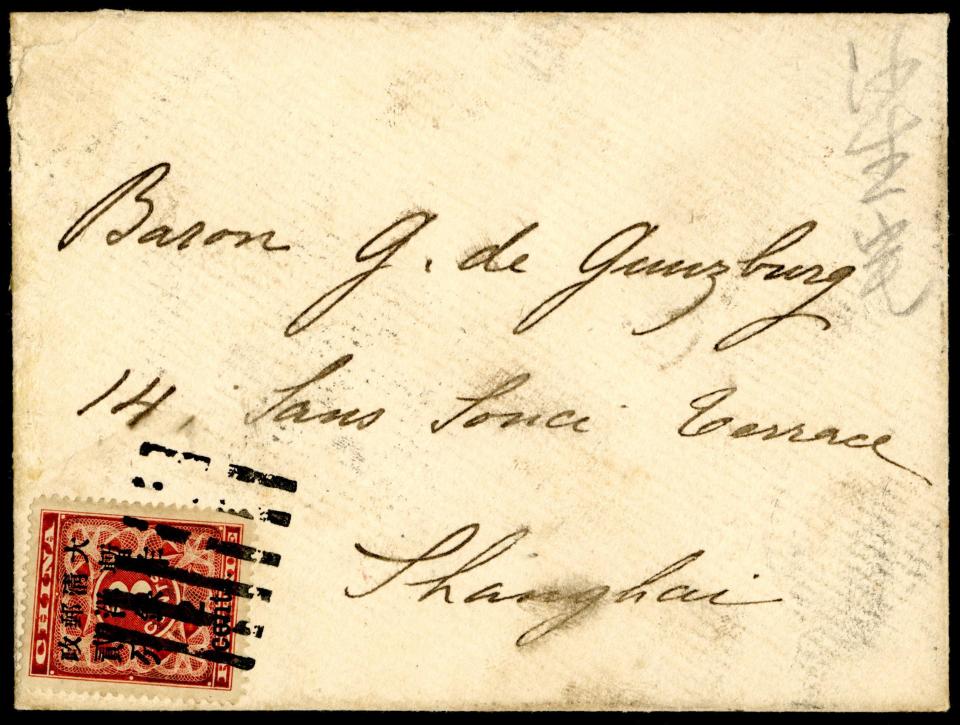 Baron G. de Gunzburg
14, Sans Souci Terrace
Shanghai
CHINA
大清郵政
貳
分
cent